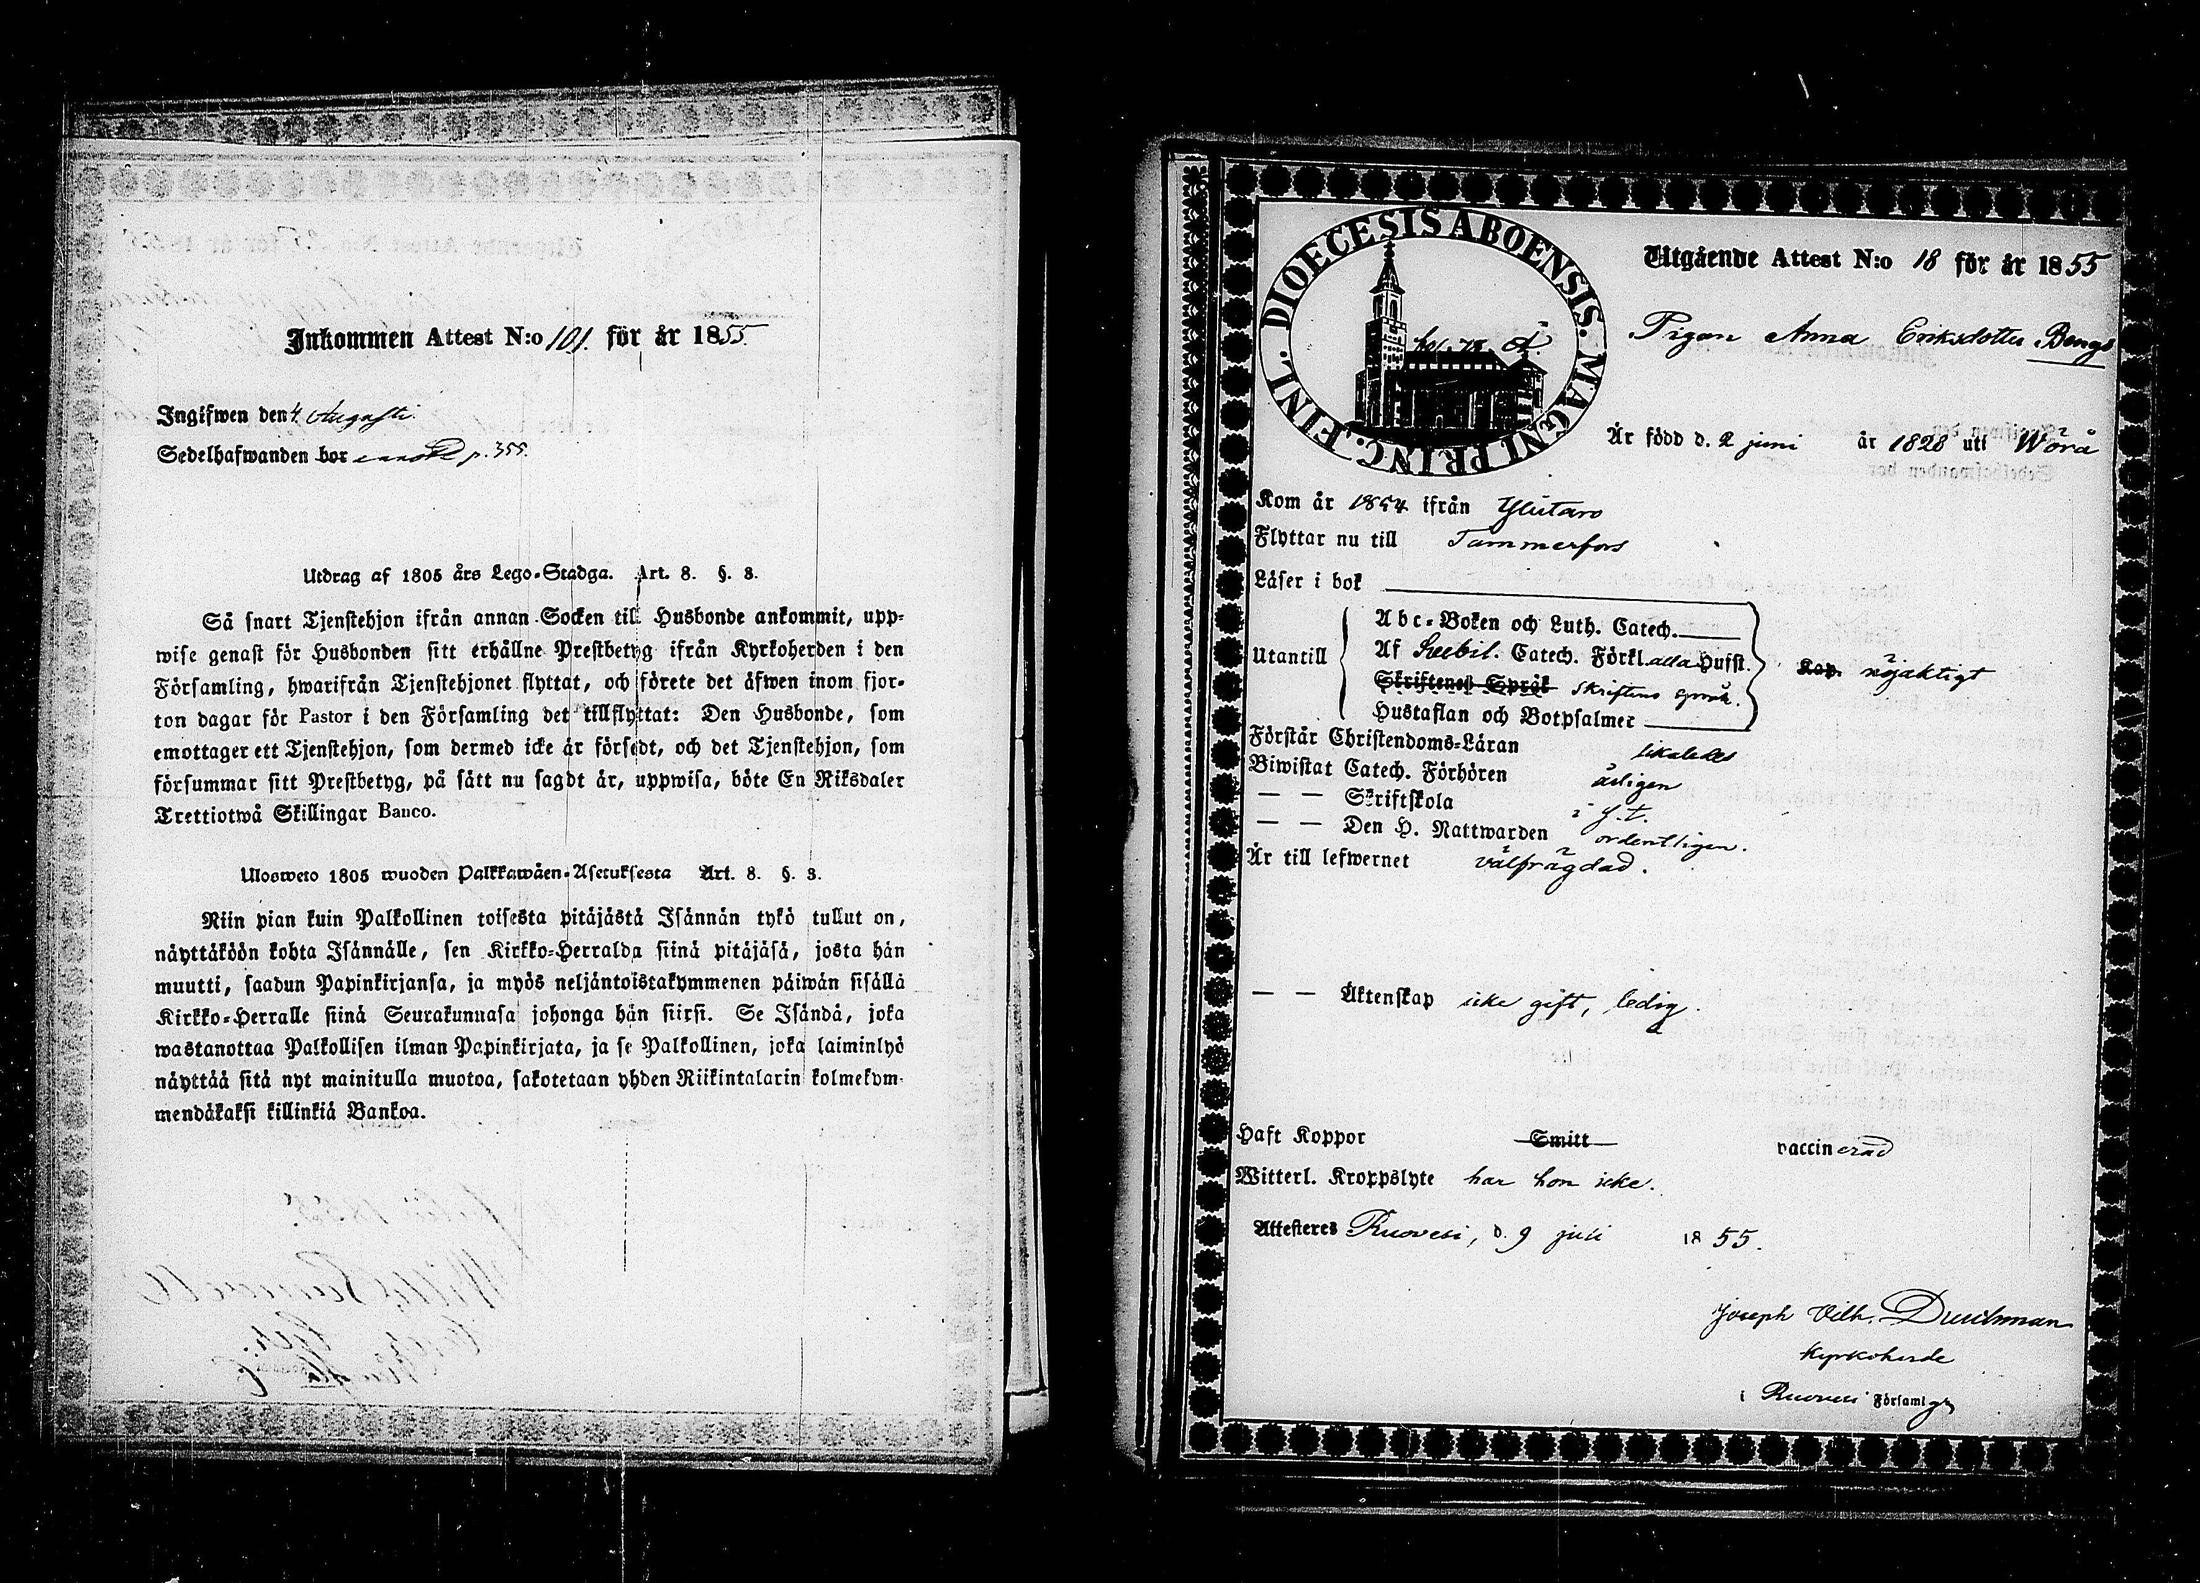 Inkommen Attest N:o 101. för år 1855.
Ingifwen den 4. Augusti.
Sedelhafwanden bor p. 355.
Utdrag af 1805 års Lego-Stadga. Art. 8. §. 3.
Så snart Tjenstehjon ifrån annan Socken till Husbonde ankommit, upp-
wise genast för Husbonden sitt erhållne Prestbetyg ifrån Kyrkoherden i den
Församling, hwarifrån Tjenstehjonet flyttat, och förete det äfwen inom fjor-
ton dagar för Pastor i den Församling det tillflyttat: Den Husbonde, som
emottager ett Tjenstehjon, som dermed icke är försedt, och det Tjenstehjon, som
försummar sitt Prestbetyg, på sätt nu sagdt är, uppwisa, böte En Riksdaler
Trettiotwå Skillingar Banco.
Ulosweto 1805 wuoden Palkkawäen-Asetuksesta Art. 8. §. 3.
Niin pian kuin Palkollinen toisesta pitäjästä Isännän tykö tullut on,
näyttäköön kohta Isännälle, sen Kirkko-Herralda siinä pitäjäsä, josta hän
muutti, saadun Papinkirjansa, ja myös neljäntoistakymmenen päiwän sisällä
Kirkko-Herralle siinä Seurakunnasa johonga hän siirsi. Se Isändä, joka
wastanottaa Palkollisen ilman Papinkirjata, ja se Palkollinen, joka laiminlyö
näyttää sitä nyt mainitulla muotoa, sakotetaan yhden Riikintalarin kolmekym-
mendäkaksi killinkiä Bankoa.
DIOECESIS ABOENSIS. MAGNI PRINC. FINL.
Utgående Attest N:o 18 för år 1855
fol. 78
Pigan Anna Eriksdotter Bengs
Är född d. 2 juni år 1828 uti Wörå
Kom år 1854 ifrån Ylistaro
Flyttar nu till Tammerfors
Läser i bok
Utantill
Abc-Boken och Luth. Catech.
Af Svebil. Catech. Förkl. alla Hufst.
Skriftenes Språk skriftens språk.
Hustaflan och Botpsalmer
Kap. nöjaktigt
Förstår Christendoms-Läran likaledes
Biwistat Catech. Förhören årligen
— — Skriftskola i y. t.
— — Den H. Nattwarden ordentligen.
Är till lefwernet välfrägdad.
— — Äktenskap icke gift, ledig.
Haft Koppor Smitt vaccinerad
Witterl. Kroppslyte har hon icke.
Attesteres Ruovesi, d. 9 juli 1855.
Joseph Vilh. Durchman
Kyrkoherde
i Ruovesi Församlgn